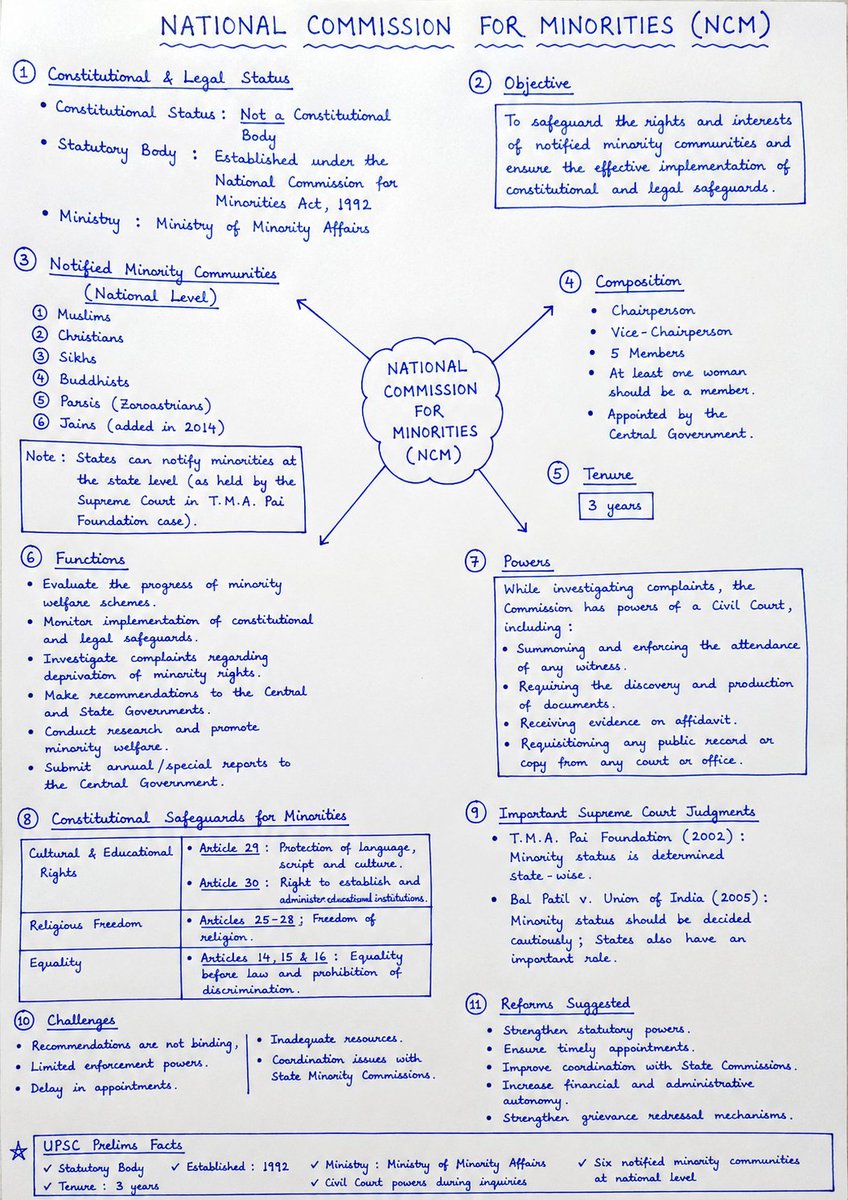 NATIONAL COMMISSION FOR MINORITIES (NCM)
① Constitutional & Legal Status
• Constitutional Status : Not a Constitutional
Body
• Statutory Body : Established under the
National Commission for
Minorities Act, 1992
• Ministry : Ministry of Minority Affairs
② Objective
To safeguard the rights and interests
of notified minority communities and
ensure the effective implementation of
constitutional and legal safeguards.
③ Notified Minority Communities
(National Level)
① Muslims
② Christians
③ Sikhs
④ Buddhists
⑤ Parsis (Zoroastrians)
⑥ Jains (added in 2014)
Note : States can notify minorities at
the state level (as held by the
Supreme Court in T.M.A. Pai
Foundation case).
NATIONAL
COMMISSION
FOR
MINORITIES
(NCM)
④ Composition
• Chairperson
• Vice-Chairperson
• 5 Members
• At least one woman
should be a member.
• Appointed by the
Central Government.
⑤ Tenure
3 years
⑥ Functions
• Evaluate the progress of minority
welfare schemes.
• Monitor implementation of constitutional
and legal safeguards.
• Investigate complaints regarding
deprivation of minority rights.
• Make recommendations to the Central
and State Governments.
• Conduct research and promote
minority welfare.
• Submit annual/special reports to
the Central Government.
⑦ Powers
While investigating complaints, the
Commission has powers of a Civil Court,
including :
• Summoning and enforcing the attendance
of any witness.
• Requiring the discovery and production
of documents.
• Receiving evidence on affidavit.
• Requisitioning any public record or
copy from any court or office.
⑧ Constitutional Safeguards for Minorities
Cultural & Educational
Rights
• Article 29 : Protection of language,
script and culture.
• Article 30 : Right to establish and
administer educational institutions.
Religious Freedom
• Articles 25-28 ; Freedom of
religion.
Equality
• Articles 14, 15 & 16 : Equality
before law and prohibition of
discrimination.
⑨ Important Supreme Court Judgments
• T.M.A. Pai Foundation (2002) :
Minority status is determined
state-wise.
• Bal Patil v. Union of India (2005) :
Minority status should be decided
cautiously ; States also have an
important role.
⑩ Challenges
• Recommendations are not binding,
• Limited enforcement powers.
• Delay in appointments.
• Inadequate resources.
• Coordination issues with
State Minority Commissions.
⑪ Reforms Suggested
• Strengthen statutory powers.
• Ensure timely appointments.
• Improve coordination with State Commissions.
• Increase financial and administrative
autonomy.
• Strengthen grievance redressal mechanisms.
☆ UPSC Prelims Facts
✓ Statutory Body ✓ Established : 1992 ✓ Ministry : Ministry of Minority Affairs ✓ Six notified minority communities
at national level
✓ Tenure : 3 years ✓ Civil Court powers during inquiries